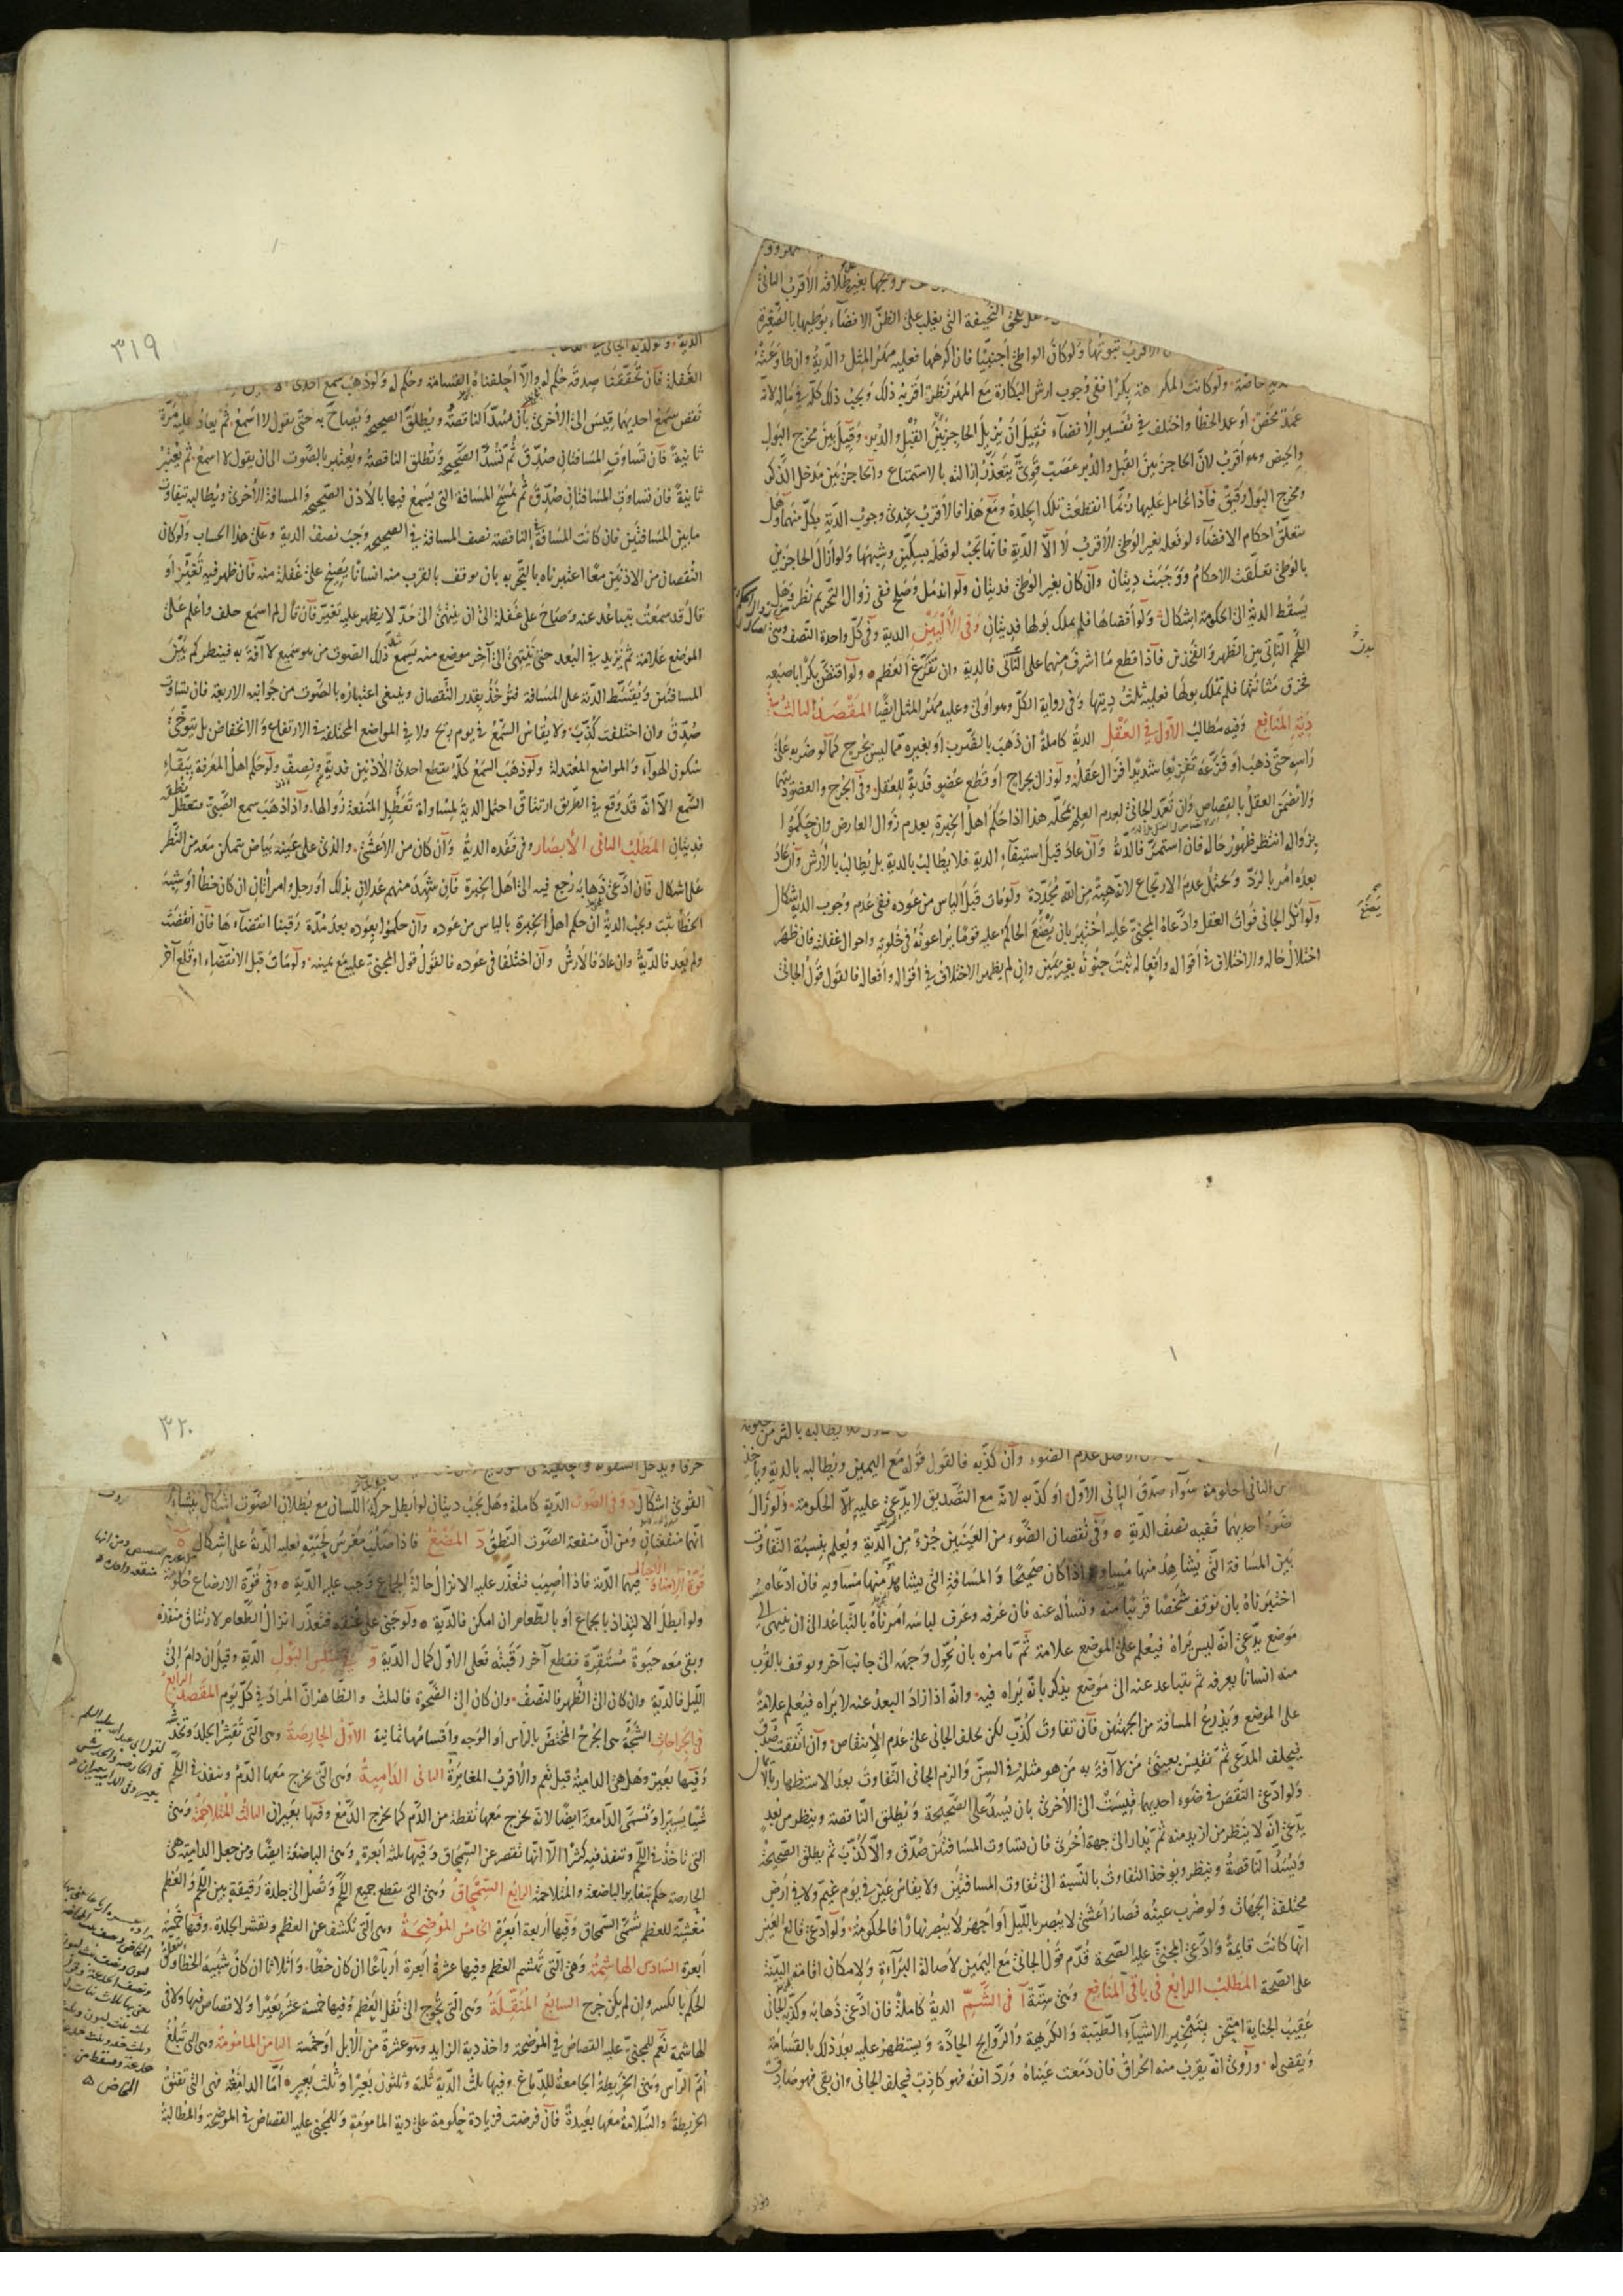 بغير طلاقه الأقرب الثانى
النحيفة التى يغلب على الظن الافضاء بوطيها بالصغيرة
الاقرب ثبوتها ولو كان الواطئ اجنبيّا فان اكرهها فعليه مهر المثل والدية وان طاوعته
خاصّة ولو كانت المكرهة بكرا ففى وجوب ارش البكارة مع المهر نظر اقربه ذلك ويجب ذلك كلّه فى ماله لانّه
عمد محض او عمد الخطأ واختلف فى تفسير الإفضاء فقيل ان يزيل الحاجز بين القبل والدبر وقيل بين مخرج البول
والحيض وهو اقرب لانّ الحاجز بين القبل والدبر عصب قوىّ يتعذّر ازالته بالاستمتاع والحاجز بين مدخل الذكر
ومخرج البول رقيق فاذا تحامل عليها ربّما انقطعت تلك الجلدة ومع هذا فالأقرب عندى وجوب الدية بكلّ منهما وهل
يتعلّق احكام الافضاء لو فعله بغير الوطئ الأقرب لا الّا الدية فانّها تجب لو فعله بسكّين وشبهها ولو ازال الحاجزين
بالوطئ تعلّقت الاحكام ووجبت ديتان وان كان بغير الوطئ فديتان ولو اندمل وصلح ففى زوال التحريم نظر وهل
يسقط الدية الى الحكومة اشكال ولو افضاها فلم يملك بولها فديتان وفى الأليين الدية وفى كلّ واحدة النصف وهى
اللّحم النّاتى بين الظهر والفخذين فاذا قطع ما اشرف منهما على النّاتى فالدية وان لم يقرع العظم ولو اقتضّ بكرا باصبعه
فخرق مثانتها فلم تملك بولها فعليه ثلث ديتها وفى رواية الكلّ وهو اولى وعليه مهر المثل ايضًا المقصد الثالث فى
دية المنافع وفيه مطالب الأوّل فى العقل الدية كاملة ان ذهب بالضّرب او بغيره ممّا ليس بجرح كما لو ضربه على
راسه حتّى ذهب او فزّعه تفزيعا شديدا فزال عقله ولو زال بجراح او قطع عضو فدية للعقل وفى الجرح والعضو ديتهما
ولا يضمن العقل بالقصاص وان تعمّد الجانى لعدم العلم بمحلّه هذا اذا حكم اهل الخبرة بعدم زوال العارض وان حكموا
بزواله انتظر ظهور حاله فان استمرّ فالدّية وان عاد قبل استيفاء الدية فلا يطالب بالدية بل يطالب بالأرش وان عاد
بعده امر بالردّ ويحتمل عدم الارتجاع لانّه هبة من الله مجدّدة ولو مات قبل الياس من عوده ففى عدم وجوب الدية اشكال
ولو انكر الجانى فوات العقل وادّعاه المجنىّ عليه اختبر بان يضع الحاكم عليه قوما يراعونه فى خلوته واحوال غفلته فان ظهر
اختلال حاله والاختلاف فى اقواله وافعاله ثبت جنونه بغير يمين وان لم يظهر الاختلاف فى اقواله وافعاله فالقول قول الجانى
٣١٩
الغفلة فان تحقّقنا صدقه حكم له والّا احلفناه القسامة وحكم له ولو ذهب سمع احدى
نقص سمع احديهما قيس الى الاخرى بان تسدّ الناقصة ويطلق الصحيحة ويصاح به حتّى يقول لا اسمع ثمّ يعاد عليه مرّة
ثانية فان تساوت المسافتان صدّق ثمّ تسدّ الصحيحة وتطلق الناقصة ويعتبر بالصّوت الى ان يقول لا اسمع ثمّ يعتبر
ثانية فان تساوت المسافتان صدّق ثمّ تمسح المسافة التى يسمع فيها بالأذن الصحيحة والمسافة الأخرى ويطالب بتفاوت
ما بين المسافتين فان كانت المسافة فى الناقصة نصف المسافة فى الصحيحة وجب نصف الدية وعلى هذا الحساب ولو كان
النقصان من الأذنين معًا اعتبرناه بالتجربه بان يوقف بالقرب منه انسانًا يصيح على غفلة منه فان ظهر فيه تغيّر او
قال قد سمعت يتباعد عنه وصاح على غفلة الى ان ينتهى الى حدّ لا يظهر عليه تغيّر فان قال لم اسمع حلف واعلم على
الموضع علامة ثمّ يزيد فى البعد حتى ينتهى الى آخر موضع منه يسمع مثل ذلك الصّوت من هو سميع لا آفة به فينظر كم بين
المسافتين ويقسّط الدّية على المسافة فتوخذ بقدر النقصان وينبغى اعتباره بالصّوت من جوانبه الاربعة فان تساوت
صدّق وان اختلفت كذّب ولا يقاس السّمع فى يوم ريح ولا فى المواضع المختلفة فى الارتفاع والانخفاض بل يتوخّى
سكون الهوآء والمواضع المعتدلة ولو ذهب السمع كلّه بقطع احدى الأذنين فدية ونصف ولو حكم اهل المعرفة ببقاء
السّمع الّا انّه قد وقع فى الطريق ارتتاق احتمل الدية لمساواة تعطّل المنفعة زوالها واذا ذهب سمع الصّبىّ فتعطّل نطقه
فديتان المطلب الثانى الأبصار وفى فقده الدية وان كان من الأعشى والذى على عينه بياض يتمكّن معه من النّظر
على اشكال فان ادّعى ذهابه رجع فيه الى اهل الخبرة فان شهد منهم عدلان بذلك او رجل وامراتان ان كان خطأ او شبيه
الخطأ ثبت ويجب الدية ان حكم اهل الخبرة بالياس من عوده وان حكموا بعوده بعد مدّة رقبنا انقضاءها فان انقضت
ولم يعد فالدّية وان عاد فالأرش وان اختلفا فى عوده فالقول قول المجنىّ عليه مع يمينه ولو مات قبل الانقضاء او قلع آخر
الأصل عدم الضوء وان كذّبه فالقول قوله مع اليمين ويطالبه بالدية وياخذ
من الثانى الحكومة سواء صدّق الثانى الاوّل او كذّبه لانّه مع التّصديق لا يدّعى عليه الّا الحكومة ولو زال
ضوء احديهما ففيه نصف الدية وفى نقصان الضّوء من العينين جزء من الدّية ويعلم بنسبة التّفاوت
بين المسافة التّى يشاهد منها مساويه اذا كان صحيحًا والمسافة التّى يشاهد منها مساويه فان ادّعاه
اختبرناه بان نوقف شخصًا قريبًا منه ونسأله عنه فان عرفه وعرف لباسه امرناه بالتّباعد الى ان ينتهى الى
موضع يدّعى انّه ليس يراه فيعلم على الموضع علامة ثمّ نامره بان يحوّل وجهه الى جانب آخر ويوقف بالقرب
منه انسانًا يعرفه ثم يتباعد عنه الى موضع يذكر بانّه يراه فيه وانّه اذا زاد البعد عنه لا يراه فيعلم علامة
على الموضع ويذرع المسافة من الجهتين فان تفاوت كذّب لكن يحلف الجانى على عدم الإنتقاص وان اتّفقت صدق
فيحلف المدّعى ثمّ نقيس بعينى من لا آفة به من هو مثله فى السنّ والزم الجانى التّفاوت بعد الاستظهار بالأيمان
ولو ادّعى النّقص فى ضوء احديهما قيست الى الأخرى بان يسدّ على الصّحيحة ويطلق النّاقصة وينظر من بعد
يدّعى انّه لا ينظر من ازيد منه ثمّ يدار الى جهة أخرى فان تساوت المسافتين صدّق والّا كذّب ثم يطلق الصحيحة
ويسدّ النّاقصة وينظر ويوخذ التفاوت بالنّسبة الى تفاوت المسافتين ولا يقاس عين فى يوم غيم ولا فى ارض
مختلفة الجهات ولو ضرب عينه فصار اعشى لا يبصر بالليل او اجهر لا يبصر نهارًا فالحكومة ولو ادّعى قالع العين
انّها كانت قايمة وادّعى المجنىّ عليه الصّحة قدّم قول الجانى مع اليمين لأصالة البرآءة ولإمكان اقامة البيّنة
على الصّحة المطلب الرابع فى باقى المنافع وهى ستّة آ فى الشّمّ الدية كاملة فان ادّعى ذهابه وكذّبه الجانى
عقيب الجناية امتحن بتبخير الاشياء الطّيبة والكريهة والرّوايح الحادّة ويستظهر عليه بعد ذلك بالقسامة
ويقضى له وروى انّه يقرب منه الحراق فان دمعت عيناه وردّ انفه فهو كاذب فيحلف الجانى وان بقى فهو صادق
٣٢٠
القوىّ اشكال وفى الصّوت الدّية كاملة وهل يجب ديتان لو ابطل حركة اللّسان مع بطلان الصّوت اشكال ينشأ من
انّهما منفعتان ومن انّ منفعة الصّوت النّطق د المضغ فاذا صلب مغرس لحييه فعليه الدّية على اشكال ه
قوّة الامناء والاحبال فيهما الدّية فاذا اصيب فتعذّر عليه الانزال حالة الجماع وجب عليه الدّية وفى قوّة الارضاع حكومة
ولو ابطل الالتذاذ بالجماع او بالطّعام ان امكن فالدّية ولو جنى على عنقه فتعذّر انزال الطّعام لارتتاق منفذه
وبقى معه حيوة مستقرّة فقطع آخر رقبته فعلى الاوّل كمال الدّية و فى سلس البول الدّية وقيل ان دام الى
اللّيل فالدّية وان كان الى الظّهر فالنّصف وان كان الى الضّحوة فالثلث والظّاهر انّ المراد فى كلّ يوم المقصد الرابع
فى الجراحات الشّجّة هى الجرح المختصّ بالرّأس او الوجه واقسامها ثمانية الأوّل الحارصة وهى الّتى تقشر الجلد وتخدشه
وفيها بعير وهل هى الدامية قيل نعم والأقرب المغايرة الثانى الدّامية وهى الّتى يخرج معها الدّم وينفذ فى اللّحم
شيئا يسيرا وتسمّى الدّامعة ايضًا لانّه يخرج معها نقطة من الدّم كما يخرج الدّمع وفيها بعيران الثالث المتلاحمة وهى
التى تاخذ فى اللّحم وتنفذ فيه كثيرًا الّا انّها تقصر عن السّمحاق وفيها ثلثة ابعرة وهى الباضعة ايضًا ومن جعل الدامية هى
الحارصة حكم بتغاير الباضعة والمتلاحمة الرابع السّمحاق وهى التى يقطع جميع اللّحم وتصل الى جلدة رقيقة بين اللّحم والعظم
مغشية للعظم تسمّى السّمحاق وفيها اربعة ابعرة الخامس الموضحة وهى الّتى تكشف عن العظم وتقشر الجلدة وفيها خمسة
ابعرة السادس الهاشمة وهى التى تهشم العظم وفيها عشرة ابعرة ارباعًا ان كان خطأً واثلاثا ان كان شبيه الخطأ ويتعلّق
الحكم بالكسر وان لم يكن جرح السابع المنقّلة وهى الّتى تحوج الى نقل العظم وفيها خمسة عشر بعيرا ولا قصاص فيها ولا فى
الهاشمة نعم للمجنىّ عليه القصاص فى الموضحة واخذ دية الزايد وهو عشرة من الأبل او خمسة الثامن المامومة وهى التى تبلغ
امّ الرّأس وهى الخريطة الجامعة للدّماغ وفيها ثلث الدّية ثلثة وثلثون بعيرًا وثلث بعير امّا الدامغة فهى التى تفتق
الخريطة والسّلامة معها بعيدة فان فرضت فزيادة حكومة على دية المامومة وللمجنى عليه القصاص فى الموضحة والمطالبة